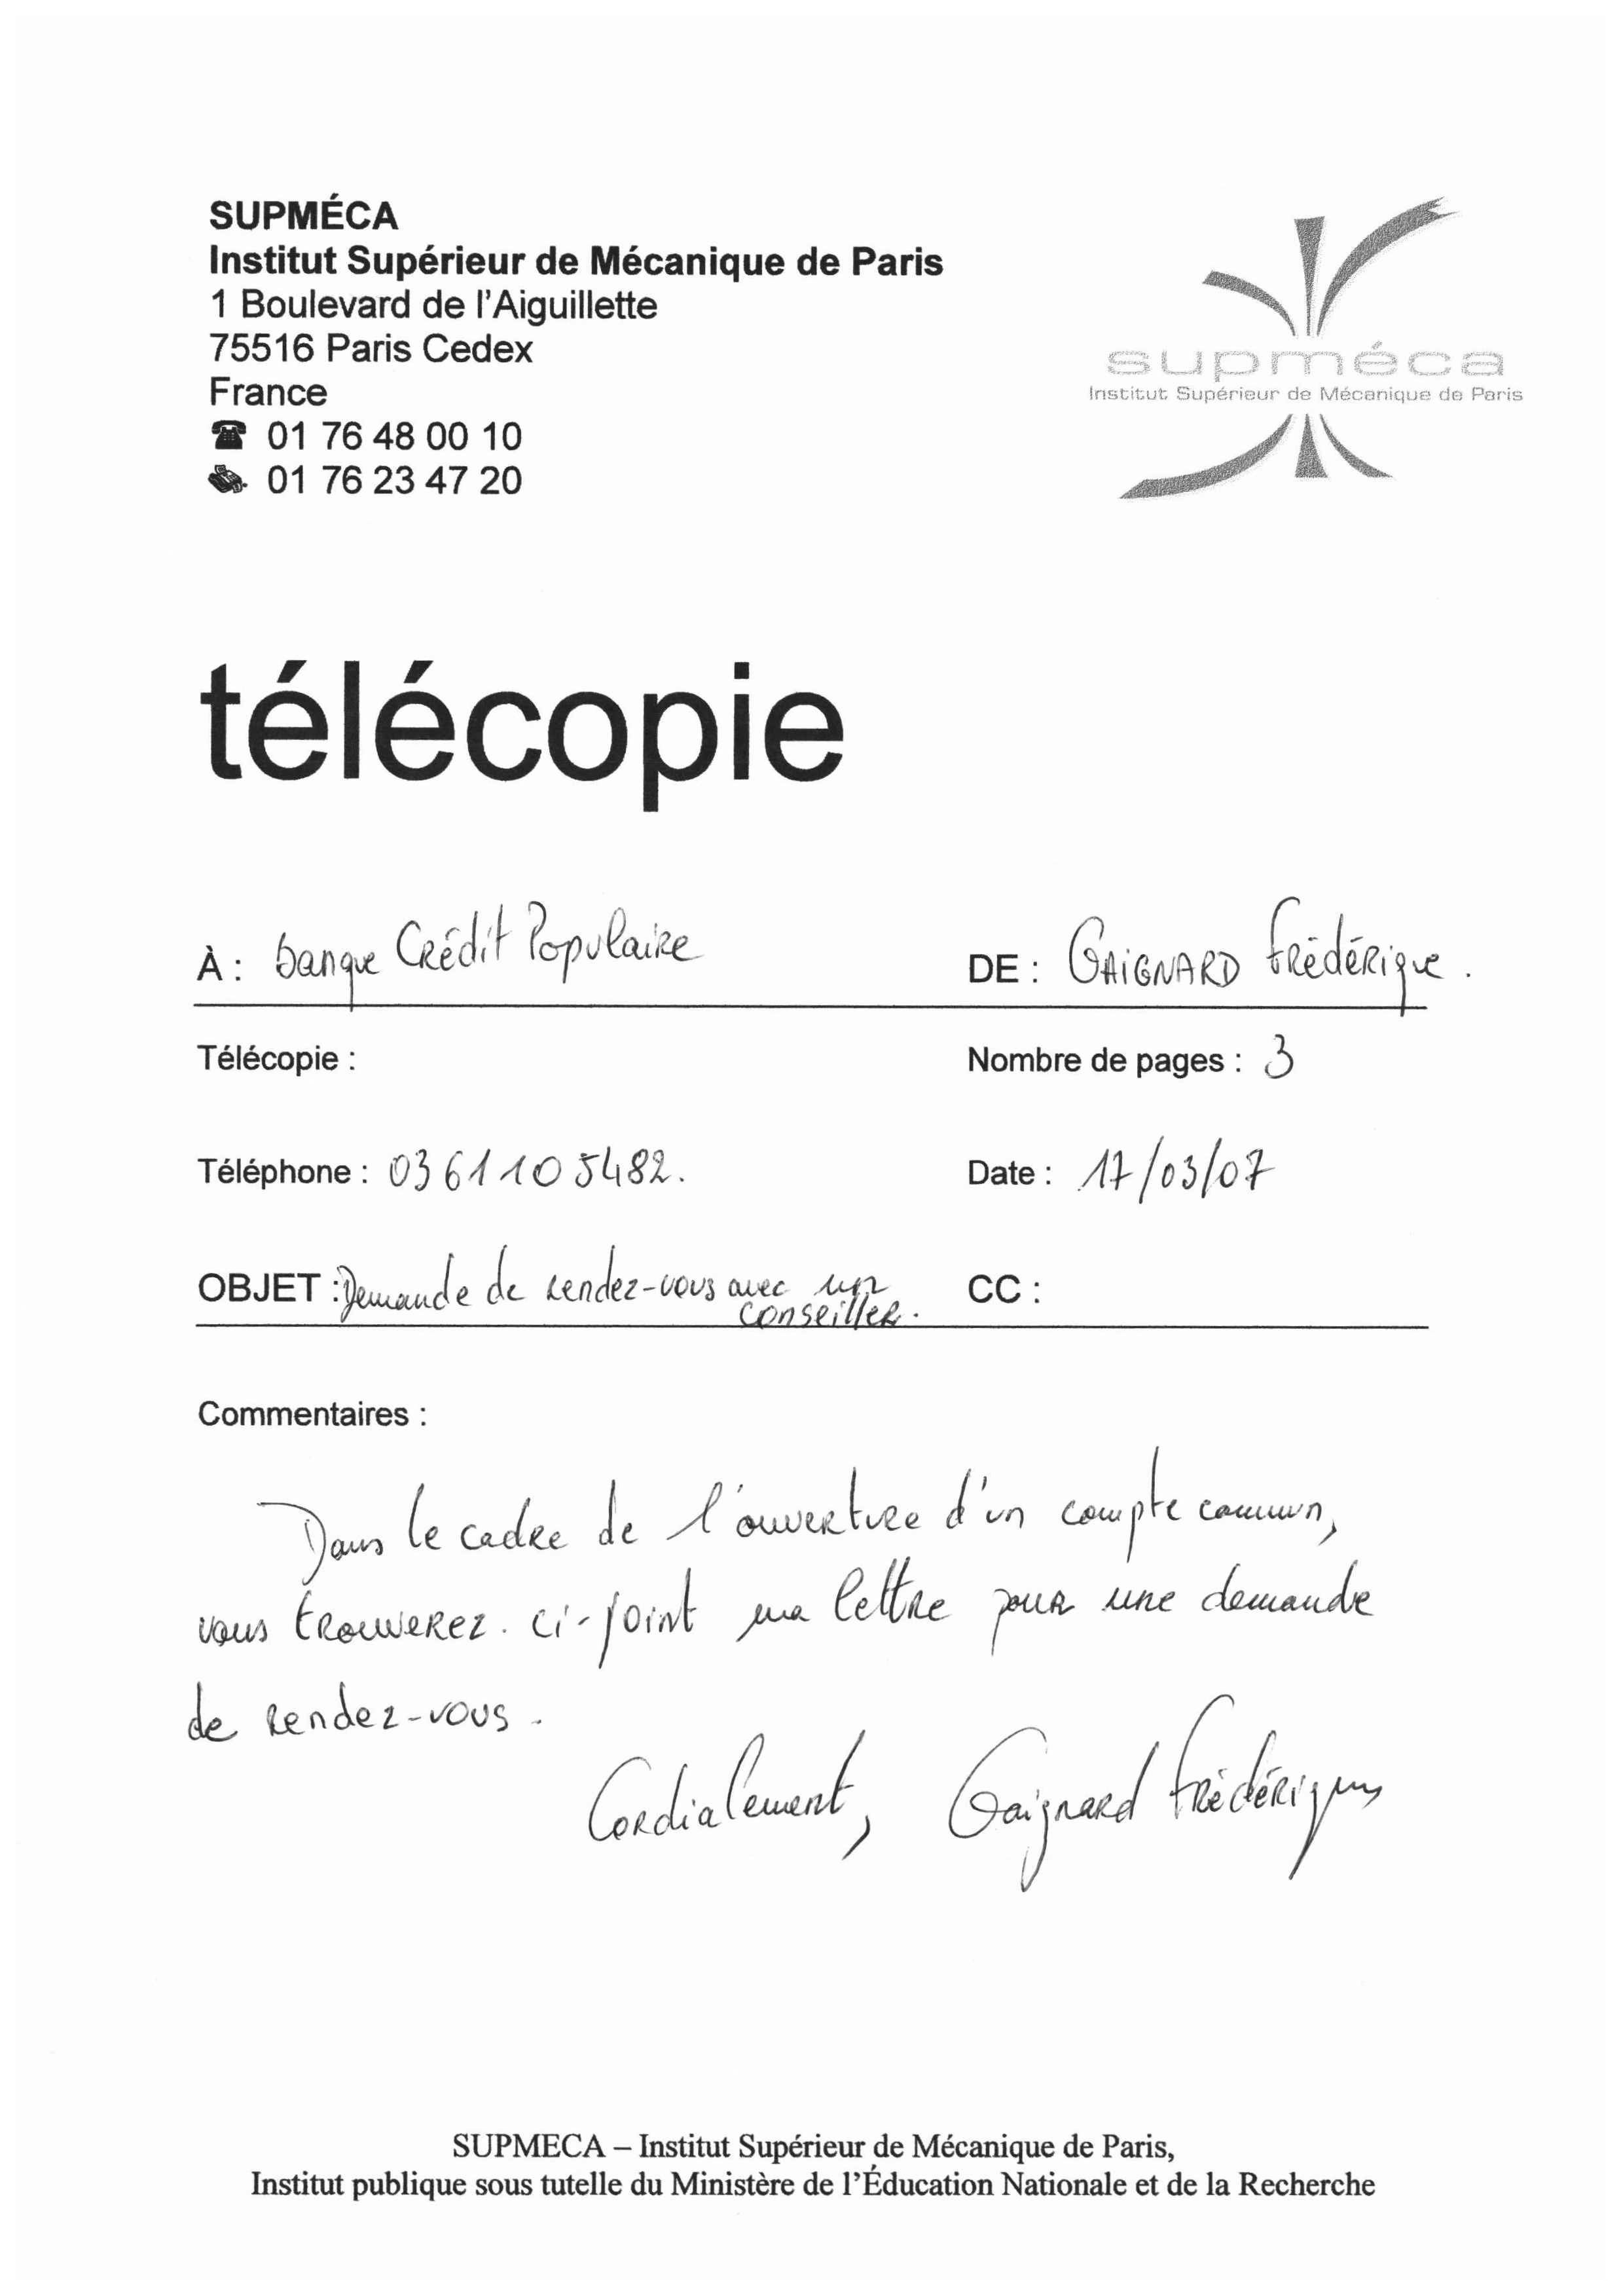 SUPMÉCA
Institut Supérieur de Mécanique de Paris
1 Boulevard de l'Aiguillette
75516 Paris Cedex
France
01 76 48 00 10
01 76 23 47 20
supméca
Institut Supérieur de Mécanique de Paris
télécopie
À : banque Crédit Populaire
DE : GAIGNARD Frédérique.
Télécopie :
Nombre de pages : 3
Téléphone : 0361105482.
Date : 17/03/07
OBJET : Demande de rendez-vous avec un
conseiller.
CC :
Commentaires :
Dans le cadre de l'ouverture d'un compte commun,
vous trouverez. ci-joint ma lettre pour une demande
de rendez-vous.
Cordialement, Gaignard Frédérique
SUPMECA – Institut Supérieur de Mécanique de Paris,
Institut publique sous tutelle du Ministère de l'Éducation Nationale et de la Recherche